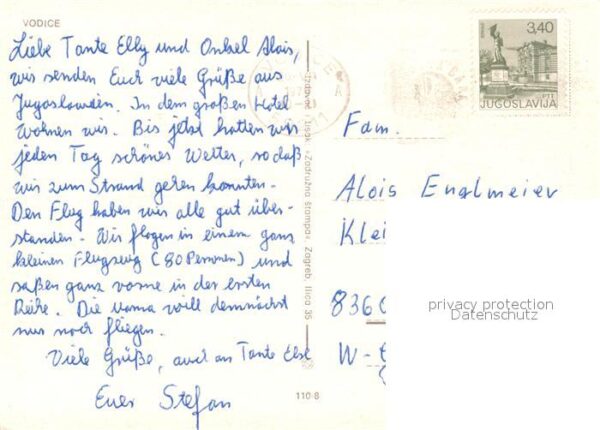 VODICE
Liebe Tante Elly und Onkel Alois,
wir senden Euch viele Grüße aus
Jugoslawien. In dem großen Hotel
wohnen wir. Bis jetzt hatten wir
jeden Tag schönes Wetter, so daß
wir zum Strand gehen konnten.
Den Flug haben wir alle gut über-
standen. Wir flogen in einem ganz
kleinen Flugzeug (80 Personen) und
saßen ganz vorne in der ersten
Reihe. Die Mama will demnächst
nur noch fliegen.
Viele Grüße, auch an Tante Else
Euer Stefan
Tisak - Zadružna štampa - Zagreb Ilica 35
110 8
3,40
JUGOSLAVIJA
Fam.
Alois Englmeier
Klei
8360
W-
privacy protection
Datenschutz